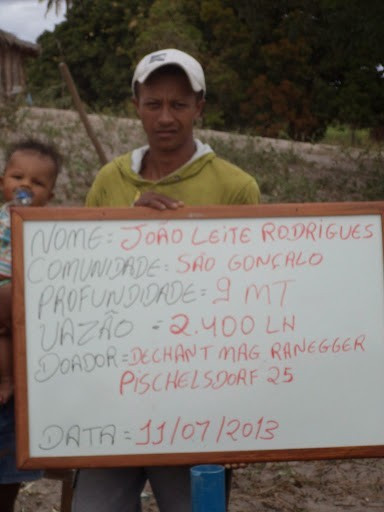 NOME = JOÃO LEITE RODRIGUES
COMUNIDADE = SÃO GONÇALO
PROFUNDIDADE = 9 MT
VAZÃO = 2.400 LH
DOADOR = DECHANT MAG RANEGGER
PISCHELSDORF 25
DATA = 11/07/2013